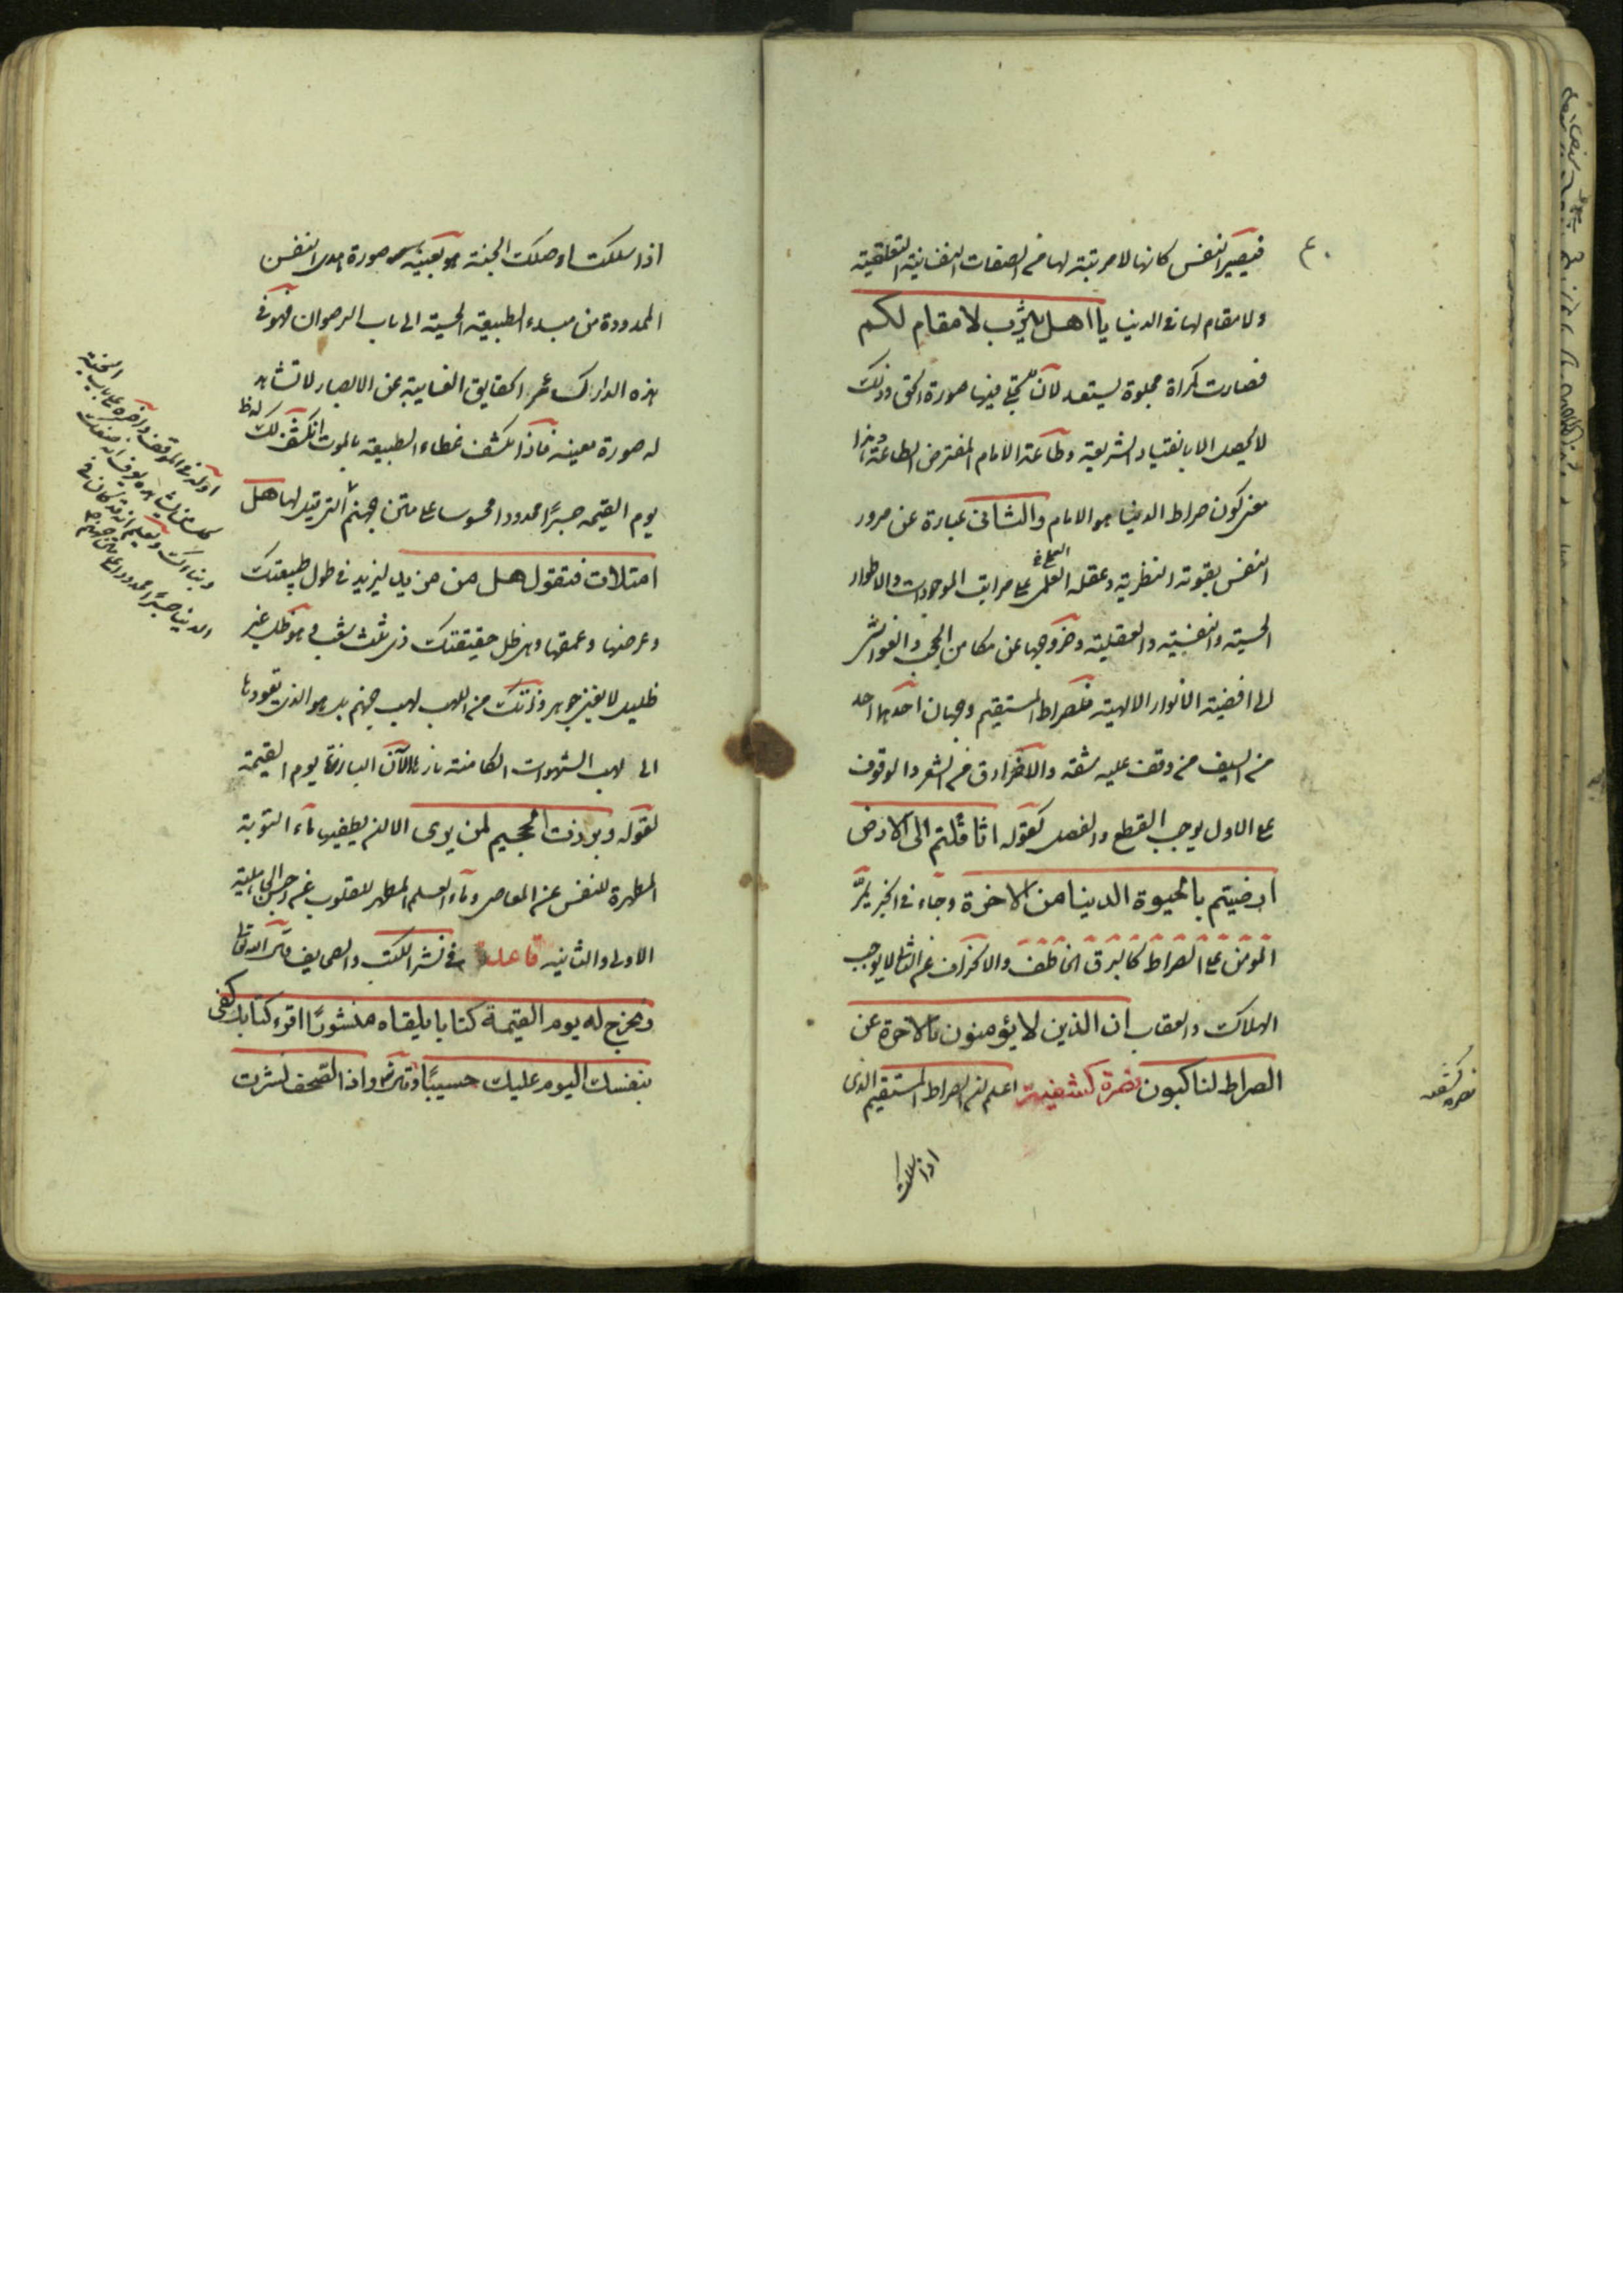 فيصير النفس كانها لا مرتبة لها من الصفات النفسانية التعلقية
ولا مقام لها فى الدنيا يا اهل يثرب لا مقام لكم
فصارت كمراة مجلوة يستعد لان يتجلى فيها صورة الحق وذلك
لا يحصل الا بانقياد الشريعة وطاعة الامام المفترض الطاعة وهذا
معنى كون صراط الدنيا هو الامام والثانى عبارة عن مرور
النفس بقوته النظرية وعقله العملى على مراتب الموجودات والاطوار
الحسية والنفسية والعقلية وخروجها عن مكامن الحجب والغواشى
الى افضية الانوار الالهية فللصراط المستقيم وجهان احدهما احد
من السيف من وقف عليه شقه والاخر ادق من الشعر والوقوف
على الاول يوجب القطع والفصل كقوله اثاقلتم الى الارض
ارضيتم بالحيوة الدنيا من الاخرة وجاء فى الخبر يمر
المومن على الصراط كالبرق الخاطف والانحراف عن الثانى يوجب
الهلاك والعقاب ان الذين لا يؤمنون بالاخرة عن
الصراط لناكبون بصرة كشفية اعلم ان الصراط المستقيم الذى
اذا سلكت
اذا سلكت اوصلك الجنة هو بعينه صورة هدى النفس
الممدودة من مبدء الطبيعة الحسية الى باب الرضوان فهو فى
هذه الدار كسائر الحقايق الغايبة عن الابصار لا تشاهد
له صورة معينة فاذا انكشف غطاء الطبيعة بالموت انكشف لك
يوم القيمة جسرًا ممدودا محسوسا على متن جهنم التى قيل لها هل
امتلات فتقول هل من مزيد ليزيد فى طول طبيعتك
وعرضها وعمقها وهى ظل حقيقتك ذى ثلث شعب هو ظل غير
ظليل لا يغنى جوهر ذاتك من اللهب لهب جهنم بل هو الذى يقودها
الى لهب الشهوات الكامنة نارها الآن البارزة يوم القيمة
لقوله وبرزت الجحيم لمن يرى الا ان يطفيها ماء التوبة
المطهرة للنفس عن المعاصى وماء العلم المطهر للقلوب عن رجس الجاهلية
الاولى والثانية قاعدة فى نشر الكتب والصحايف قال الله تعالى
ونخرج له يوم القيمة كتابا يلقاه منشورًا اقرء كتابك كفى
بنفسك اليوم عليك حسيبًا وقال واذا الصحف نشرت
اوله فى الموقف واخره على باب الجنة